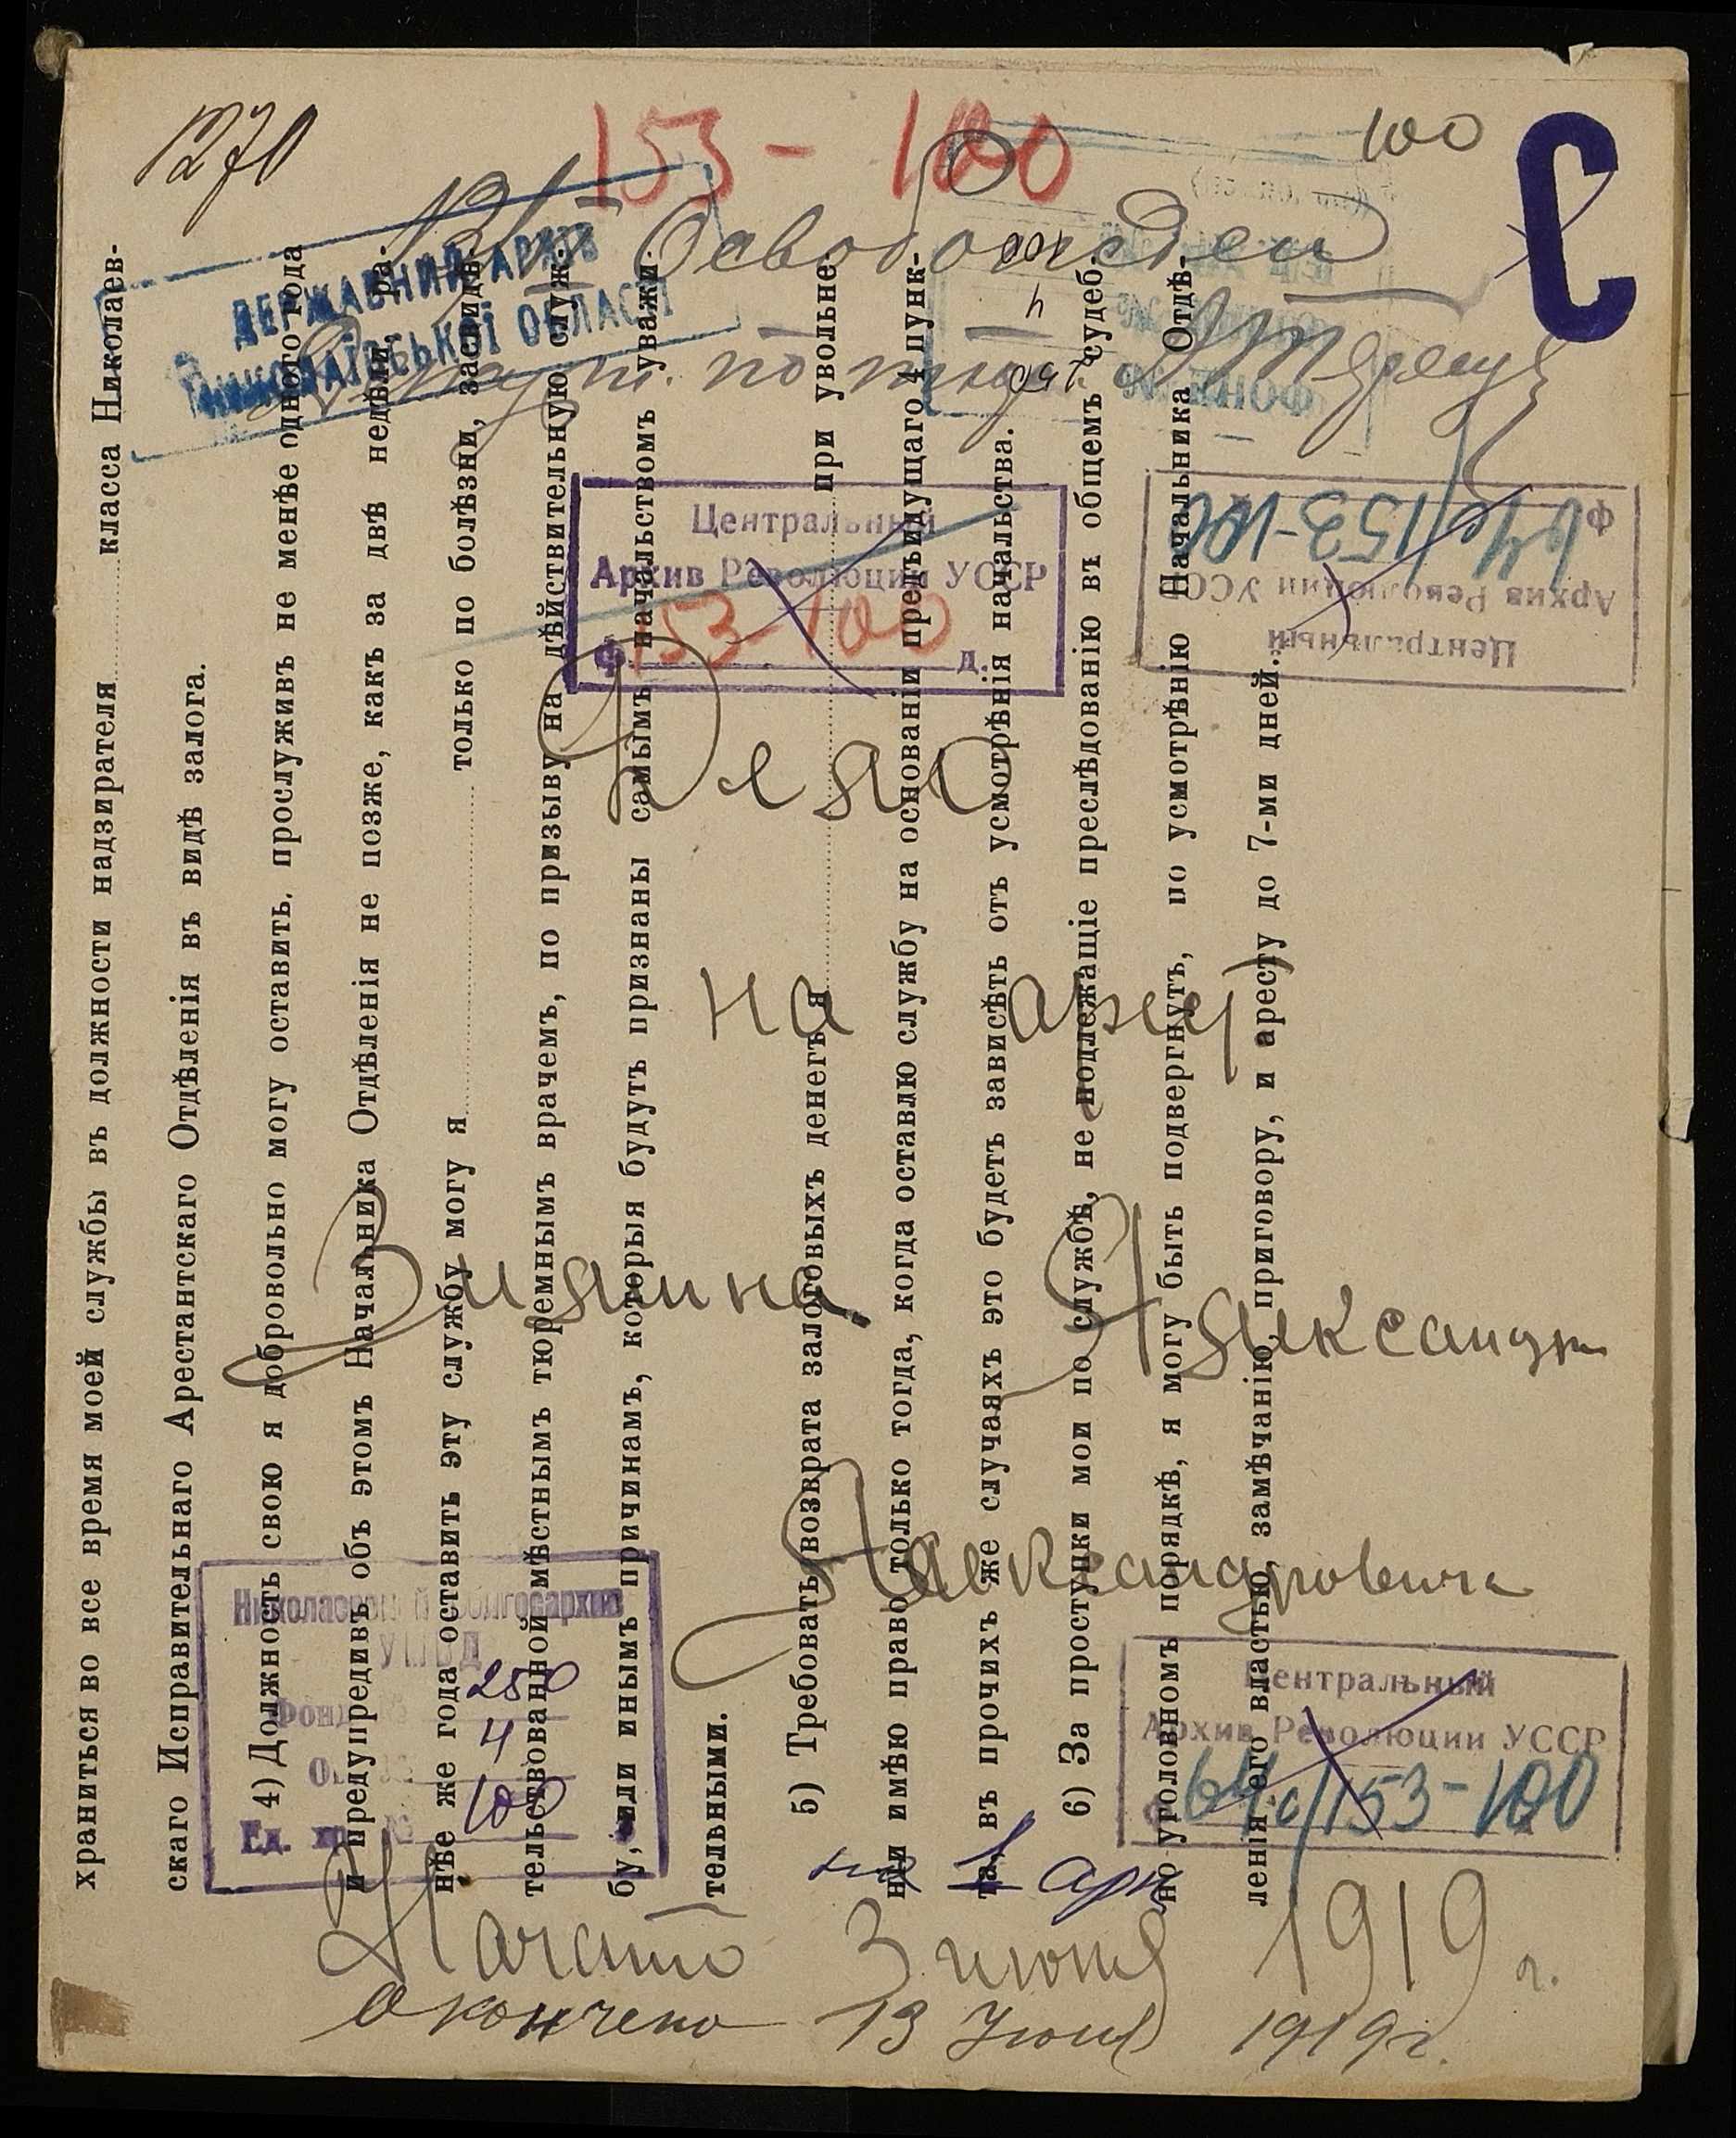 1270
153-100
100
С
Освобожден
ДЕРЖАВНИЙ АРХІВ
МИКОЛАЇВСЬКОЇ ОБЛАСТІ
100
4
250
ФОНД №
Центральный
Архив Революции УССР
ф. 153-100 д.
Центральный
Архив Революции УССР
Ф 64с/153-100
Дело
на арест
Александра
Александровича
Николаевский Облгосархив
УНКВД
Фонд № 250
Оп. № 4
Ед. хр. № 100
Центральный
Архив Революции УССР
64с/153-100
на 1 арк
Начато 3 июня 1919 г.
Окончено 13 Июня 1919 г.
храниться во все время моей службы въ должности надзирателя класса Николаев-
скаго Исправительнаго Арестантскаго Отдѣленія въ видѣ залога.
4) Должность свою я добровольно могу оставить, прослуживъ не менѣе одного года
и предупредивъ объ этомъ Начальника Отдѣленія не позже, какъ за двѣ недѣли, ра-
нѣе же года оставить эту службу могу я только по болѣзни, засвидѣ-
тельствованной мѣстнымъ тюремнымъ врачемъ, по призыву на дѣйствительную служ-
бу, или инымъ причинамъ, которыя будутъ признаны самымъ начальствомъ уважи-
тельными.
5) Требовать возврата залоговыхъ денегъ я при увольне-
ніи имѣю право только тогда, когда оставлю службу на основаніи предъидущаго 4 пунк-
та, въ прочихъ же случаяхъ это будетъ зависѣть отъ усмотрѣнія начальства.
6) За проступки мои по службѣ, не подлежащіе преслѣдованію въ общемъ судеб-
но уголовномъ порядкѣ, я могу быть подвергнутъ, по усмотрѣнію Начальника Отдѣ-
ленія его властью, замѣчанію, приговору, и аресту до 7-ми дней.